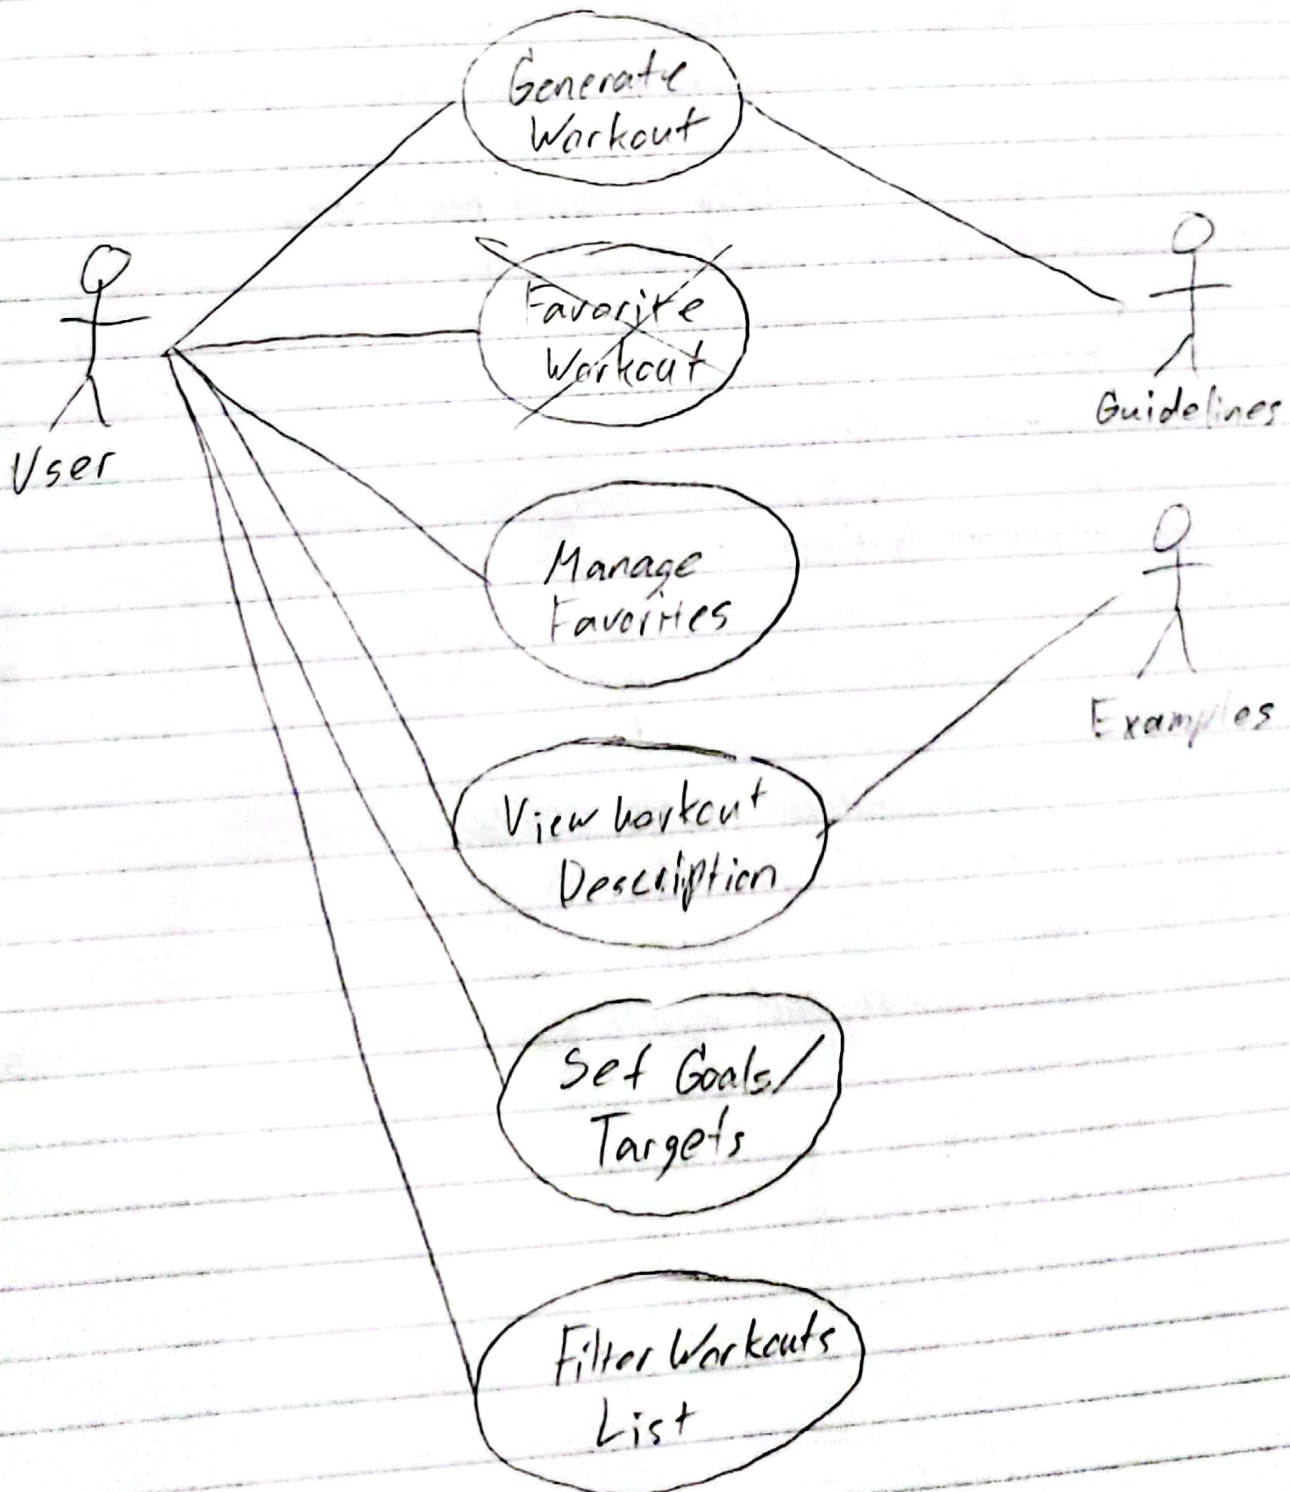 Generate
Workout
Favorite
Workout
User
Guidelines
Manage
Favorites
Examples
View Workout
Description
Set Goals/
Targets
Filter Workouts
List